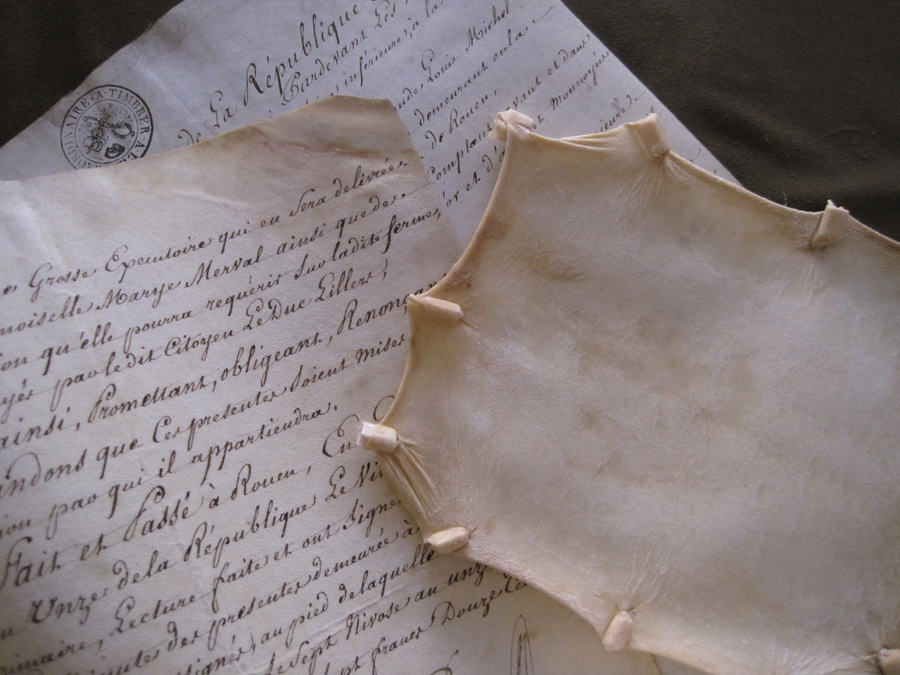 de La République
Pardevant Les
inférieure, à la
Louis Michel
demeurant
de Rouen,
Comptant et dans
Monnoyes
or et d'
A TIMBRER A
Grosse Executoire qui en Sera délivrée
moiselle Marye Merval ainsi que de
qu'elle pourra requérir Sur ladite ferme,
par ledit Citoyen LeDuc Lillers;
ainsi, Promettant, obligeant, Renonçant
andons que Ces présentes Soient mises
par qui il appartiendra.
Fait et Passé à Rouen, En
Unze de la République Le Vi
Lecture faite et ont Signé
des présentes demeurée à
au pied de laquelle
Le Sept Nivose au unze
francs Douze